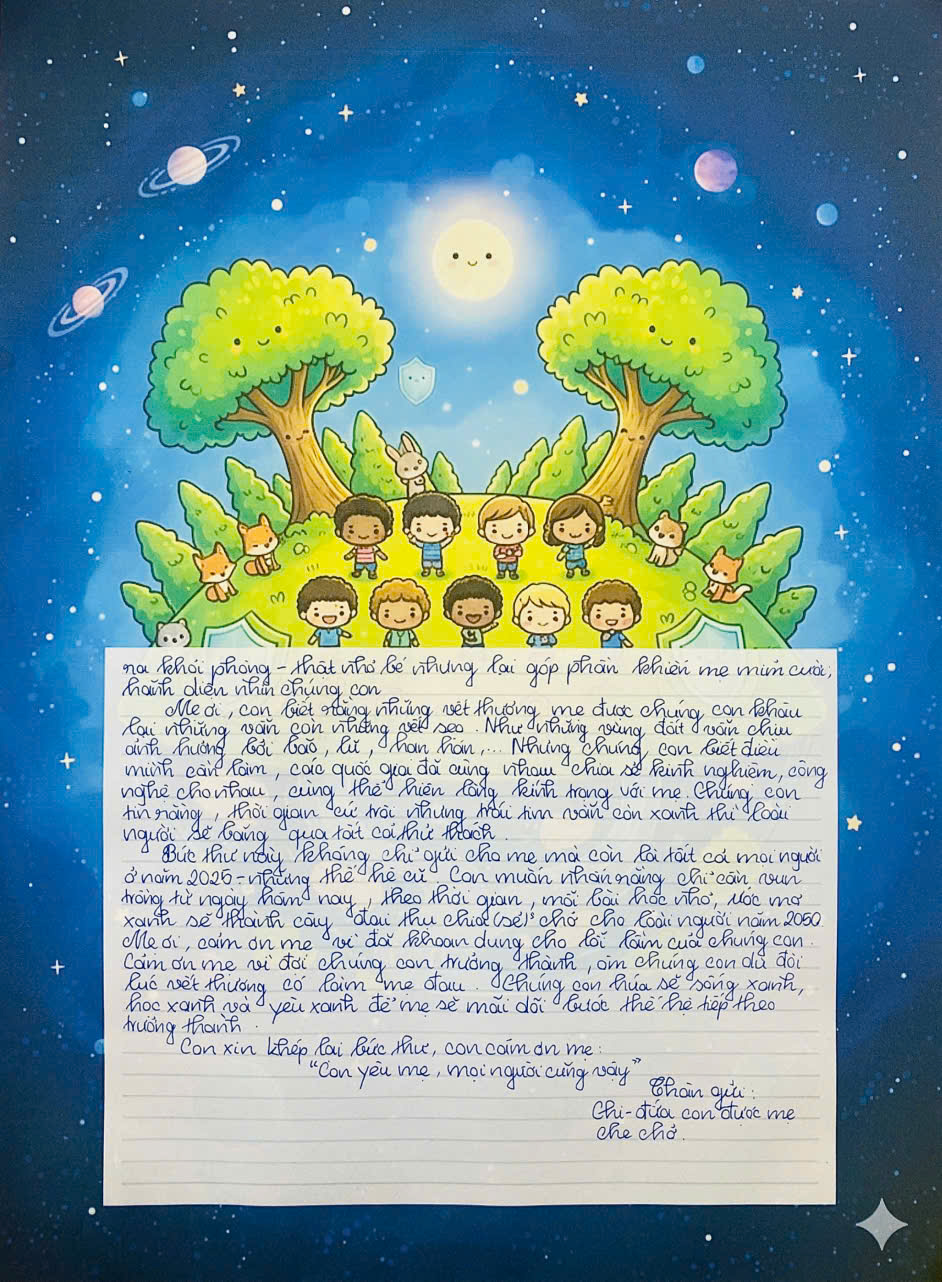 ra khỏi phòng - thật nhỏ bé nhưng lại góp phần khiến mẹ mỉm cười,
hãnh diện nhìn chúng con
Mẹ ơi, con biết rằng những vết thương mẹ được chúng con khâu
lại nhưng vẫn còn những vết sẹo. Như những vùng đất vẫn chịu
ảnh hưởng bởi bão, lũ, hạn hán,... Nhưng chúng con biết điều
mình cần làm, các quốc gia đã cùng nhau chia sẻ kinh nghiệm, công
nghệ cho nhau, cùng thể hiện lòng kính trọng với mẹ. Chúng con
tin rằng, thời gian cứ trôi nhưng trái tim vẫn còn xanh thì loài
người sẽ băng qua tất cả thử thách.
Bức thư này không chỉ gửi cho mẹ mà còn là tất cả mọi người
ở năm 2025 - những thế hệ cũ. Con muốn nhắn rằng chỉ cần vun
trồng từ ngày hôm nay, theo thời gian, mỗi bài học nhỏ, ước mơ
xanh sẽ thành cây đại thụ chia (sẻ) chở cho loài người năm 2050.
Mẹ ơi, cảm ơn mẹ vì đã khoan dung cho lỗi lầm của chúng con.
Cảm ơn mẹ vì đợi chúng con trưởng thành, ôm chúng con dù đôi
lúc vết thương có làm mẹ đau. Chúng con hứa sẽ sống xanh,
học xanh và yêu xanh để mẹ sẽ mãi dõi bước thế hệ tiếp theo
trưởng thành.
Con xin khép lại bức thư, con cảm ơn mẹ:
"Con yêu mẹ, mọi người cũng vậy"
Thân gửi:
Chi - đứa con được mẹ
che chở.